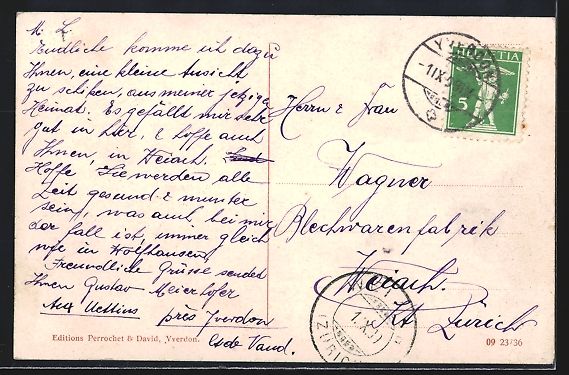 M. L.
Endliche komme ich dazu
Ihnen, eine kleine Ansicht
zu schiken, aus meiner jetzigen
Heimat. Es gefällt mir sehr
gut in hier, & hoffe auch
Ihnen, in Weiach.
Hoffe Sie werden alle
Zeit gesund & munter
sein, was auch bei mir
der fall ist, immer gleich
wie in Wolfhausen
Freundliche Grüsse sendet
Ihnen Gustav Meierhofer
près Yverdon
Ct de Vaud.
Herrn & Frau
Wagner
Blechwarenfabrik
Weiach.
Kt Zürich
HELVETIA
5
YVERDON
(ZÜRICH)
Editions Perrochet & David, Yverdon.
09 23/36